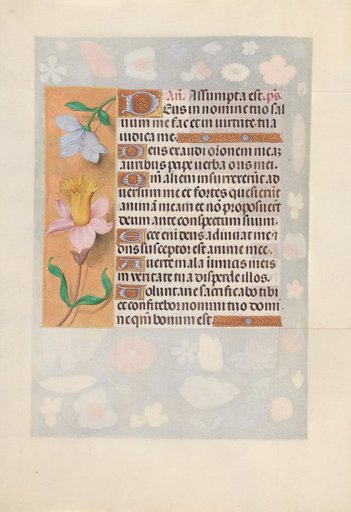 Añ. Assumpta est. ps.
Deus in nomine tuo sal
uum me fac et in uirtute tua
iudica me.
Deus exaudi orōnem meā:
auribus percipe uerba oris mei.
Qm̄ alieni insurrexerūt ad
uersum me et fortes quesierūt
animā meam et nō proposuerūt
deum ante conspectum suum.
Ecce eni deus adiuuat me: et
dn̄s susceptor est anime mee.
Auerte mala inimicis meis
in ueritate tua disperde illos.
Voluntarie sacrificabo tibi
et confitebor nomini tuo domi
ne qm̄ bonum est.